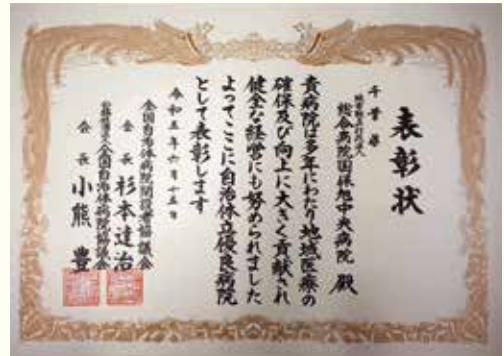 表彰状
千葉県
地方独立行政法人
総合病院国保旭中央病院 殿
貴病院は多年にわたり地域医療の
確保及び向上に大きく貢献され
健全な経営にも努められました
よってここに自治体立優良病院
として表彰します
令和五年六月十五日
全国自治体病院開設者協議会
会長 杉本達治
公益社団法人全国自治体病院協議会
会長 小熊 豊